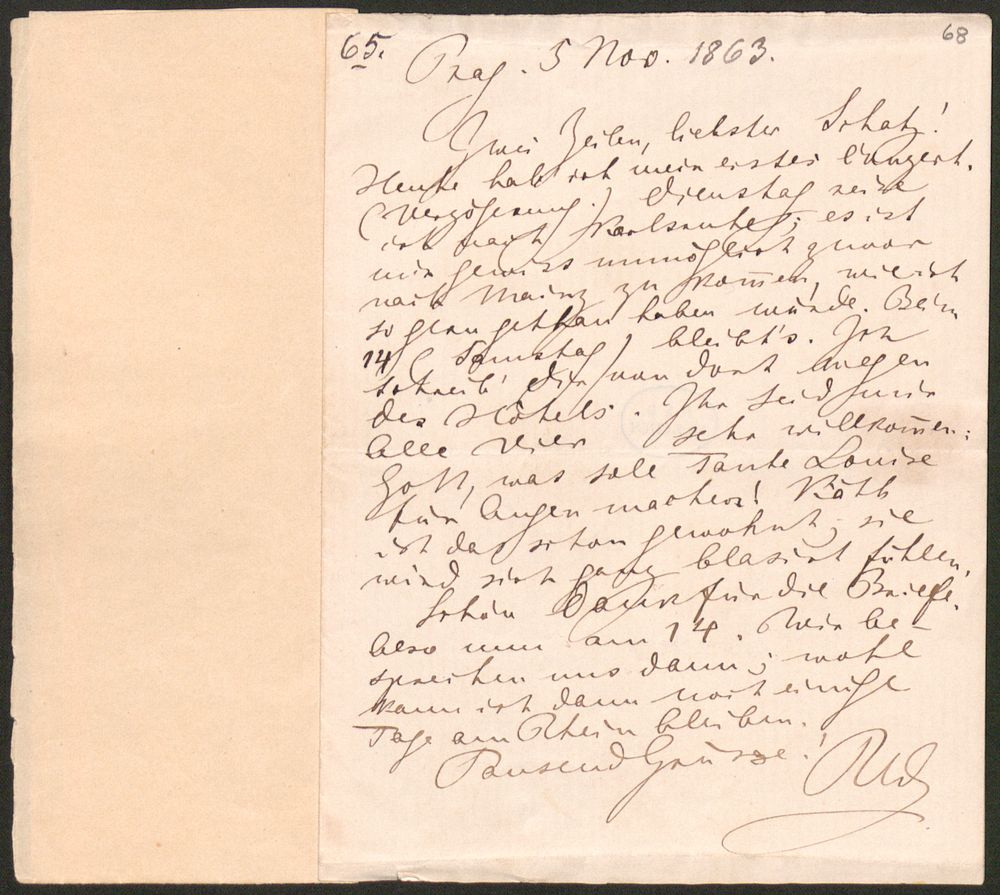 65.
68
Prag. 5 Nov. 1863.
Zwei Zeilen, liebster Schatz!
Heute hab' ich mein erstes Conzert.
(Verzögerung.) Dienstag reise
ich nach Karlsruhe; es ist
mir gewiss unmöglich zuvor
nach Mainz zu kom̅en, wie ich
so gern gethan haben würde. Beim
14 (Samstag) bleibt's. Ich
schreib' Dir von dort wegen
des Hôtels. Ihr seid mir
Alle Vier sehr willkom̅en:
Gott, was soll Tante Louise
für Augen machen! Käth
ist das schon gewohnt; sie
wird sich ganz blasirt fühlen.
Schön Dank für die Briefe.
Also nun am 14. Wir be-
sprechen uns dann; wohl
kann ich dann noch einige
Tage am Rhein bleiben.
Tausend Grüsse!